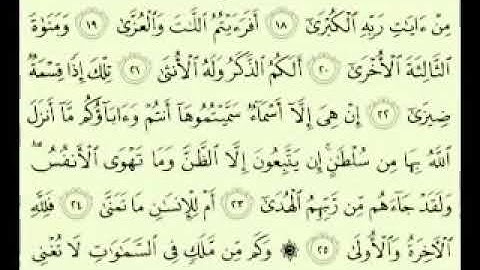 مِنْ ءَايَـٰتِ رَبِّهِ ٱلْكُبْرَىٰٓ ١٨ أَفَرَءَيْتُمُ ٱللَّـٰتَ وَٱلْعُزَّىٰ ١٩ وَمَنَوٰةَ
ٱلثَّالِثَةَ ٱلْأُخْرَىٰٓ ٢٠ أَلَكُمُ ٱلذَّكَرُ وَلَهُ ٱلْأُنثَىٰ ٢١ تِلْكَ إِذًا قِسْمَةٌ
ضِيزَىٰٓ ٢٢ إِنْ هِىَ إِلَّآ أَسْمَآءٌ سَمَّيْتُمُوهَآ أَنتُمْ وَءَابَآؤُكُم مَّآ أَنزَلَ
ٱللَّهُ بِهَا مِن سُلْطَـٰنٍ ۚ إِن يَتَّبِعُونَ إِلَّا ٱلظَّنَّ وَمَا تَهْوَى ٱلْأَنفُسُ ۖ
وَلَقَدْ جَآءَهُم مِّن رَّبِّهِمُ ٱلْهُدَىٰٓ ٢٣ أَمْ لِلْإِنسَـٰنِ مَا تَمَنَّىٰ ٢٤ فَلِلَّهِ
ٱلْـَٔاخِرَةُ وَٱلْأُولَىٰ ٢٥ ۞ وَكَم مِّن مَّلَكٍ فِى ٱلسَّمَـٰوَٰتِ لَا تُغْنِى